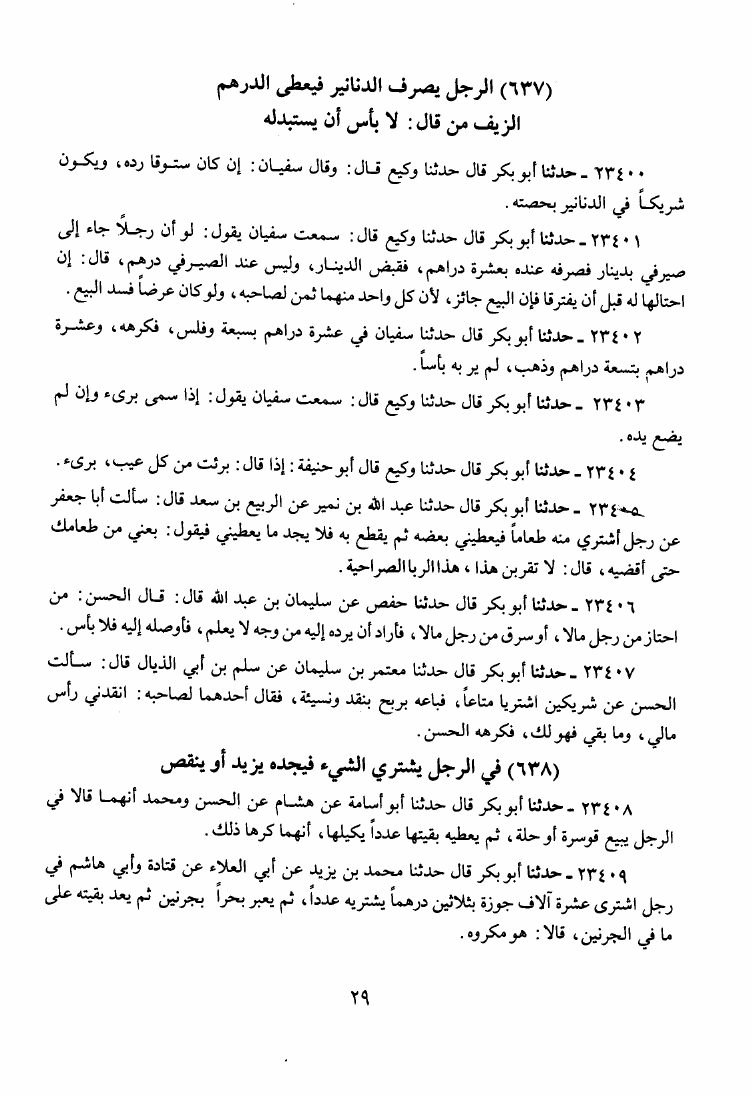 (٦٣٧) الرجل يصرف الدنانير فيعطى الدرهم
الزيف من قال: لا بأس أن يستبدله
٢٣٤٠٠ ـ حدثنا أبو بكر قال حدثنا وكيع قال: وقال سفيان: إن كان ستوقا رده، ويكون
شريكاً في الدنانير بحصته.
٢٣٤٠١ ـ حدثنا أبو بكر قال حدثنا وكيع قال: سمعت سفيان يقول: لو أن رجلاً جاء إلى
صيرفي بدينار فصرفه عنده بعشرة دراهم، فقبض الدينار، وليس عند الصيرفي درهم، قال: إن
احتالها له قبل أن يفترقا فإن البيع جائز، لأن كل واحد منهما ثمن لصاحبه، ولو كان عرضاً فسد البيع.
٢٣٤٠٢ ـ حدثنا أبو بكر قال حدثنا سفيان في عشرة دراهم بسبعة وفلس، فكرهه، وعشرة
دراهم بتسعة دراهم وذهب، لم ير به بأساً.
٢٣٤٠٣ ـ حدثنا أبو بكر قال حدثنا وكيع قال: سمعت سفيان يقول: إذا سمى برىء وإن لم
يضع يده.
٢٣٤٠٤ ـ حدثنا أبو بكر قال حدثنا وكيع قال أبو حنيفة: إذا قال: برئت من كل عيب، برىء.
٢٣٤٠٥ ـ حدثنا أبو بكر قال حدثنا عبد الله بن نمير عن الربيع بن سعد قال: سألت أبا جعفر
عن رجل أشتري منه طعاماً فيعطيني بعضه ثم يقطع به فلا يجد ما يعطيني فيقول: بعني من طعامك
حتى أقضيه، قال: لا تقربن هذا، هذا الربا الصراحية.
٢٣٤٠٦ ـ حدثنا أبو بكر قال حدثنا حفص عن سليمان بن عبد الله قال: قال الحسن: من
احتاز من رجل مالا، أو سرق من رجل مالا، فأراد أن يرده إليه من وجه لا يعلم، فأوصله إليه فلا بأس.
٢٣٤٠٧ ـ حدثنا أبو بكر قال حدثنا معتمر بن سليمان عن سلم بن أبي الذيال قال: سألت
الحسن عن شريكين اشتريا متاعاً، فباعه بربح بنقد ونسيئة، فقال أحدهما لصاحبه: انقدني رأس
مالي، وما بقي فهو لك، فكرهه الحسن.
(٦٣٨) في الرجل يشتري الشيء فيجده يزيد أو ينقص
٢٣٤٠٨ ـ حدثنا أبو بكر قال حدثنا أبو أسامة عن هشام عن الحسن ومحمد أنهما قالا في
الرجل يبيع قوسرة أو حلة، ثم يعطيه بقيتها عدداً يكيلها، أنهما كرها ذلك.
٢٣٤٠٩ ـ حدثنا أبو بكر قال حدثنا محمد بن يزيد عن أبي العلاء عن قتادة وأبي هاشم في
رجل اشترى عشرة آلاف جوزة بثلاثين درهماً يشتريه عدداً، ثم يعبر بحراً بجرنين ثم يعد بقيته على
ما في الجرنين، قالا: هو مكروه.
٢٩